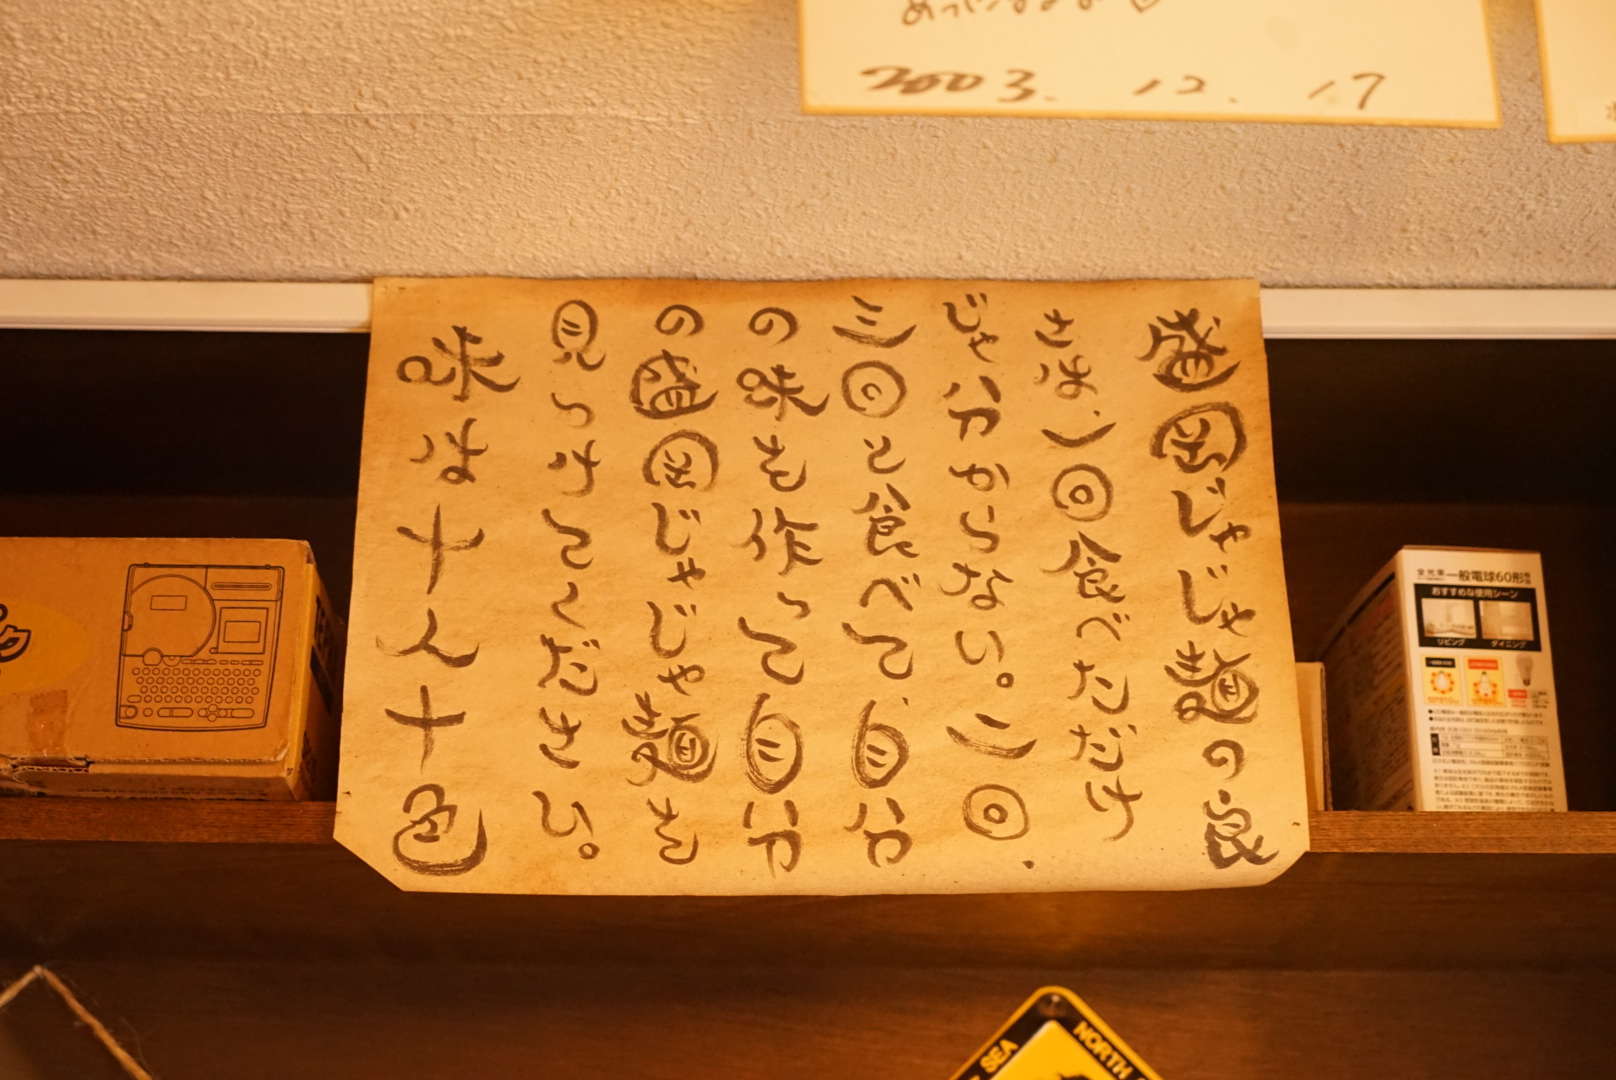 2003. 12. 17
盛岡じゃじゃ麺の良
さは、一回食べただけ
じゃ分からない。二回、
三回と食べて、自分
の味を作って自分
の盛岡じゃじゃ麺を
見つけてください。
味は十人十色
全光束
一般電球60形
おすすめな使用シーン
リビング
ダイニング
SEA
NORTH